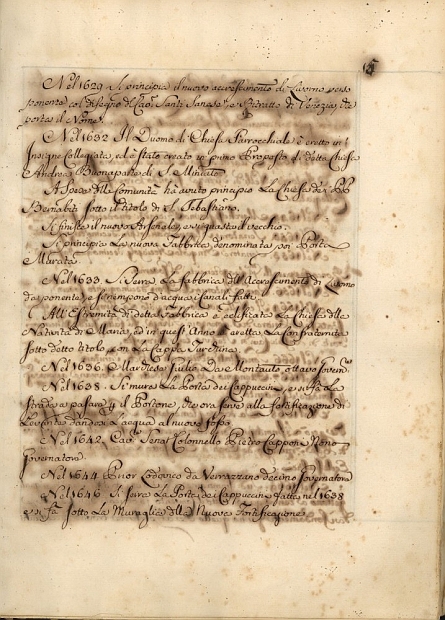 Nel 1629. Si principia il nuovo accrescimento di Livorno verso
ponente col disegno di Cav. Santi e Ritratto di Venezia, che
porta il Nome.
Nel 1632. Il Duomo di Chiesa Parrocchiale è eretto in
Insigne Collegiata, ed è stato creato in primo Proposto di detta Chiesa
Andrea Buonaparte di S. Miniato
A Spese della Comunità ha avuto principio La Chiesa dei PP
Bernabiti sotto il titolo di S. Sebastiano.
Si finisce il nuovo Arsenale, e si guasta il vecchio.
Si principia La nuova Fabbrica denominata poi Porta
Murata
Nel 1633. Si Serra La fabbrica dell' Accrescimento di Livorno
da ponente, e si rempono d'acqua i Canali fatti.
All' Estremità di detta Fabbrica è edificata La Chiesa della
Natività di Maria, ed in quest' Anno è eretta La Confraternita
sotto detto titolo, con La Cappa Turchina.
Nel 1636. Marchese Giulio Da Montauto, ottavo Govern.re
Nel 1638. Si mura La Porta dei Cappuccini, e si fà La
Strada a pasare il Portone, che ora serve alla fortificazione di
Levante dandosi L'acqua al nuovo fosso
Nel 1642. Cav. Senat. Colonnello Pietro Capponi Nono
Governatore.
Nel 1644. Prior Lodovico da Verrazzano decimo Governatore
Nel 1646. Si serra La Porta dei Cappuccini fatta nel 1638
e si fà sotto La Muraglia della Nuova Fortificazione